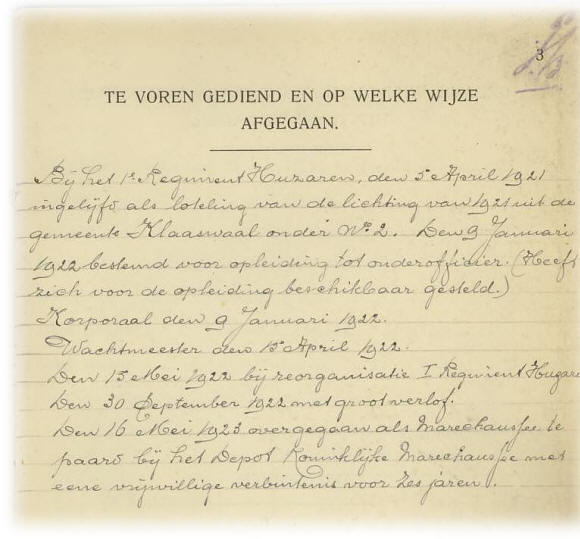 3
TE VOREN GEDIEND EN OP WELKE WIJZE
AFGEGAAN.
Bij het 1e Regiment Huzaren, den 5e April 1921
ingelijfd als loteling van de lichting van 1921 uit de
gemeente Klaaswaal onder No. 2. Den 9 Januari
1922 bestemd voor opleiding tot onderofficier. (Heeft
zich voor de opleiding beschikbaar gesteld.)
Korporaal den 9 Januari 1922.
Wachtmeester den 15e April 1922.
Den 15 Mei 1922 bij reorganisatie I Regiment Huzare
Den 30 September 1922 met groot verlof.
Den 16 Mei 1923 overgegaan als Marechaussee te
paard bij het Depot Koninklijke Marechaussee met
eene vrijwillige verbintenis voor zes jaren.